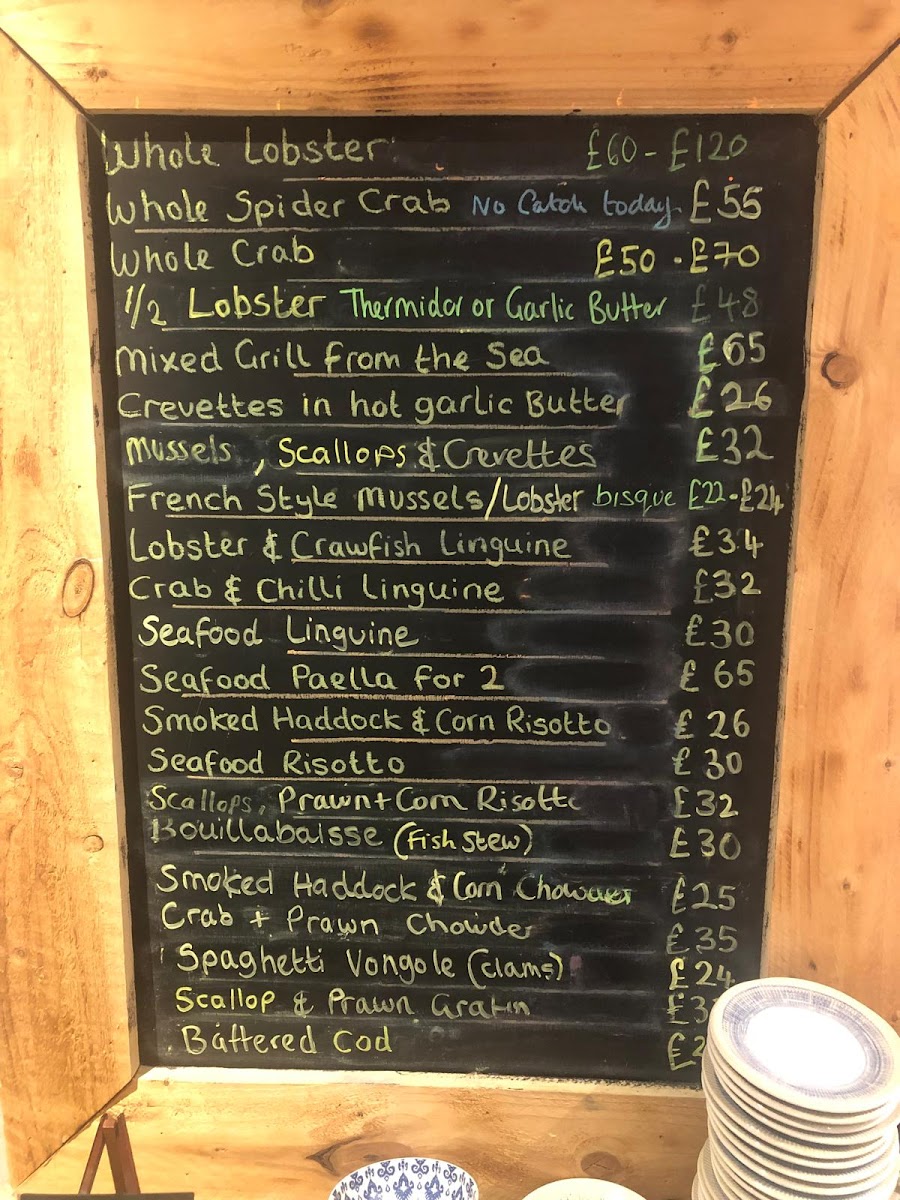 Whole Lobster £60 - £120
Whole Spider Crab No Catch today £55
Whole Crab £50 - £70
1/2 Lobster Thermidor or Garlic Butter £48
Mixed Grill from the Sea £65
Crevettes in hot garlic Butter £26
Mussels, Scallops & Crevettes £32
French Style Mussels/Lobster bisque £22 - £24
Lobster & Crawfish Linguine £34
Crab & Chilli Linguine £32
Seafood Linguine £30
Seafood Paella for 2 £65
Smoked Haddock & Corn Risotto £26
Seafood Risotto £30
Scallops, Prawn + Corn Risotto £32
Bouillabaisse (Fish Stew) £30
Smoked Haddock & Corn Chowder £25
Crab + Prawn Chowder £35
Spaghetti Vongole (clams) £24
Scallop & Prawn Gratin £3
Battered Cod £2